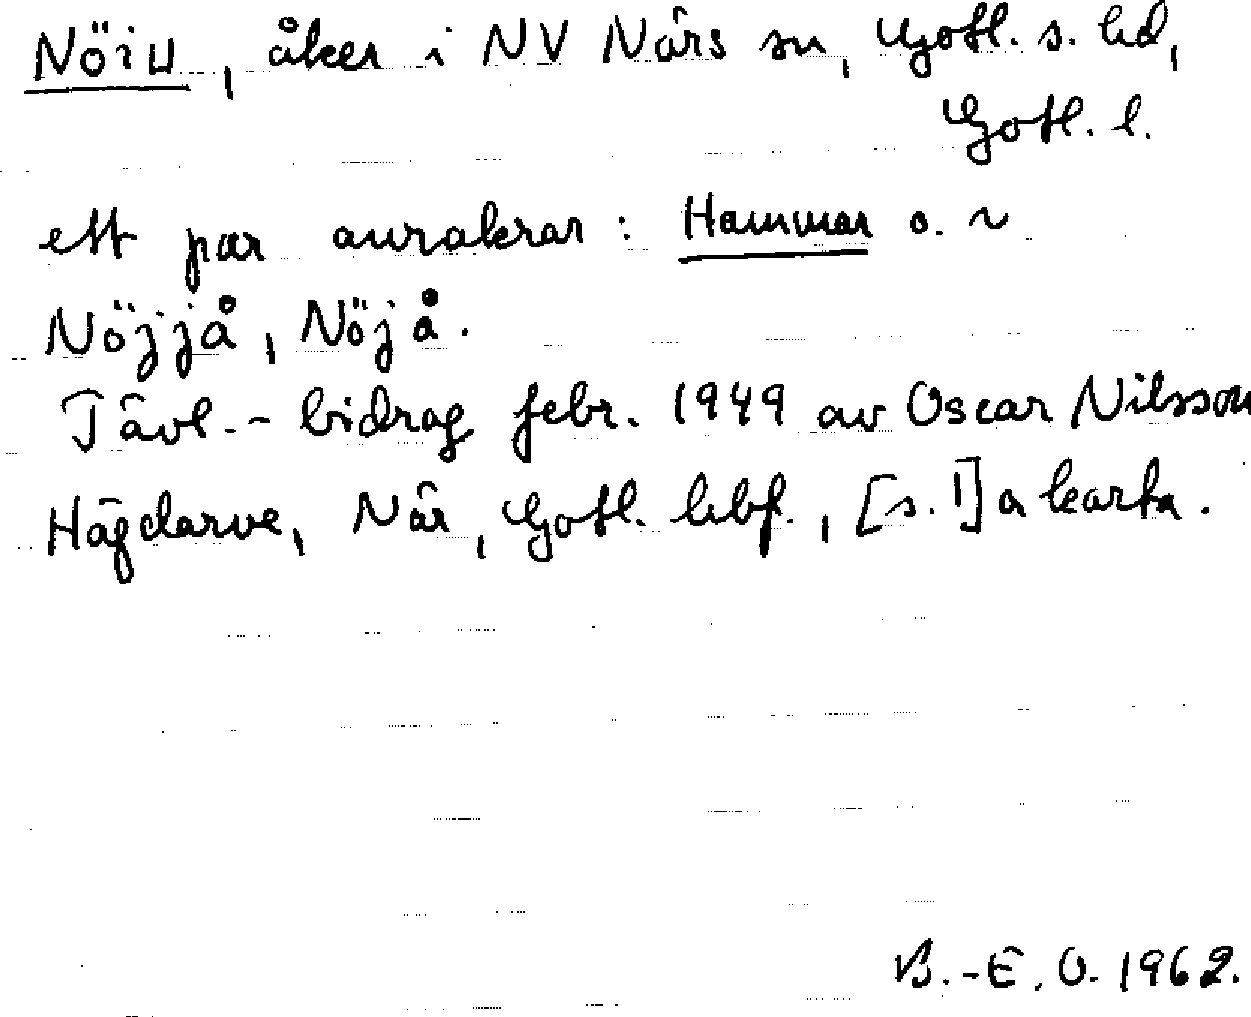 Nöiu, åker i NV Närs sn, Gotl. s. hd,
Gotl. l.
ett par auråkrar: Hammar o. ~
Nöjjå, Nöjå.
Tävl.-bidrag febr. 1949 av Oscar Nilsson
Hägdarve, När, Gotl. hbf., [s. 1] a karta.
B.-E. O. 1962.